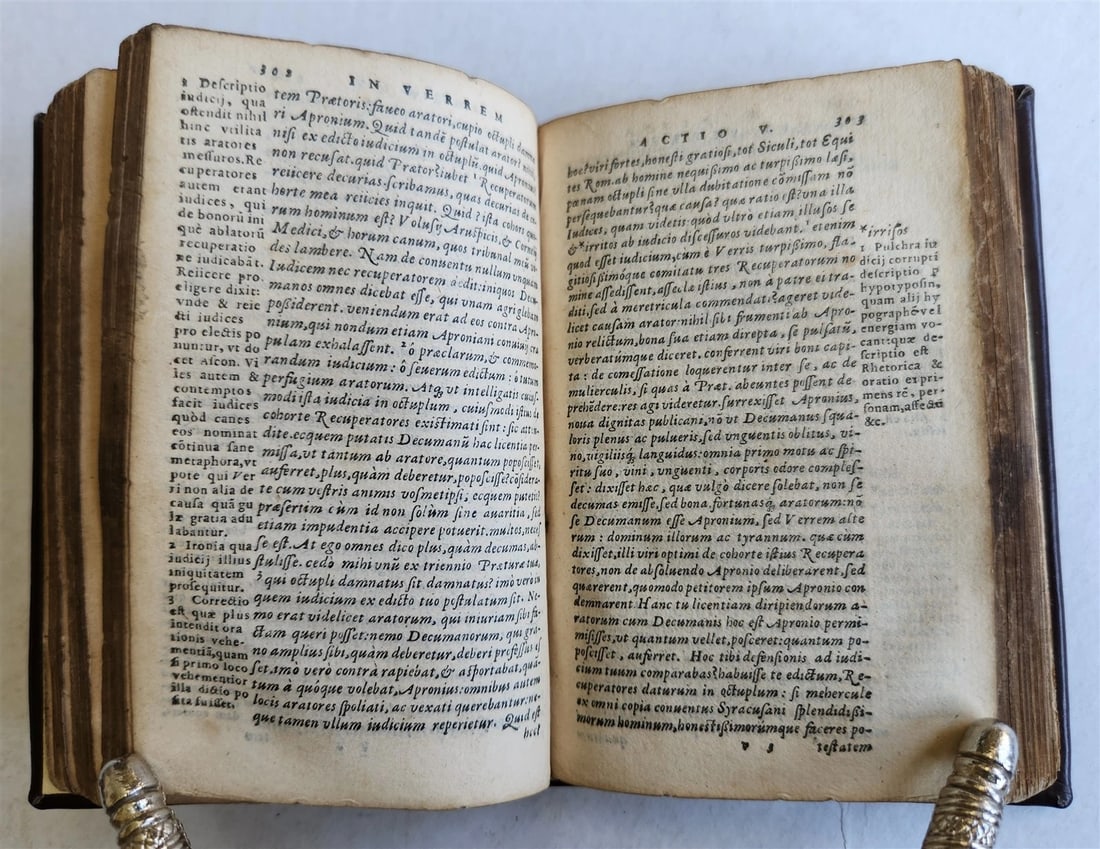 308
IN VERREM
1 Descriptio
iudicij, qua
ostendit nihil
hinc vtilita
tis aratores
messuros. Re
cuperatores
autem erant
iudices, qui
de bonorũ ini
què ablatorũ
recuperatio
ne iudicabāt.
Reiicere pro
eligere dixit:
vnde & reie
cti iudices
pro electis po
nuntur, vt do
cet Ascon. Vi
les autem &
contemptos
facit iudices
quòd canes
eos nominat
cōtinua sane
metaphora, vt
pote qui Ver
ri non alia de
causa quā gu
læ gratia adu
labantur.
2 Ironia qua
iudicij illius
iniquitatem
prosequitur.
3 Correctio
est quæ plus
intendit ora
tionis vehe-
mentiā, quam
si primo loco
vehementior
illa dictio po
sita fuisset.
tem Prætoris: faueo aratori, cupio octupli damna
ri Apronium. Quid tandē postulat arator? nihil
nisi ex edicto iudicium in octuplũ. quid Apronius?
non recusat. quid Prætor? iubet ¹Recuperatores
reiicere decurias. scribamus, quas decurias de co-
horte mea reiicies inquit. Quid? ista cohors quo-
rum hominum est? Volusij Aruspicis, & Cornelij
Medici, & horum canum, quos tribunal meũ vi-
des lambere. Nam de conuentu nullum vnquam
Iudicem nec recuperatorem dedit: iniquos Decu-
manos omnes dicebat esse, qui vnam agri glebam
possiderent. veniendum erad ad eos contra Apro-
nium, qui nondum etiam Aproniani conuiuij cra
pulam exhalassent. ²ô præclarum, & commemo-
randum iudicium: ô seuerum edictum: ô tutum
perfugium aratorum. Atq; vt intelligatis cuius-
modi ista iudicia in octuplum, cuiusmodi istius de
cohorte Recuperatores existimati sint: sic atten-
dite. ecquem putatis Decumanũ hac licentia per-
missa, vt tantum ab aratore, quantum poposcisset,
auferret, plus, quàm deberetur, poposcisse? cōsidera-
te cum vestris animis vosmetipsi, ecquem putetis?
præsertim cum id non solùm sine auaritia, sed
etiam impudentia accipere potuerit. multos, necesse
se est. At ego omnes dico plus, quàm decumas, ab-
stulisse. cedò mihi vnũ ex triennio Præturæ tuæ,
³qui octupli damnatus sit. damnatus? imò verò in
quem iudicium ex edicto tuo postulatum sit. Ne-
mo erat videlicet aratorum, qui iniuriam sibi fa-
ctam queri posset: nemo Decumanorum, qui gra-
no amplius sibi, quàm deberetur, deberi professus es
set. imò verò contrà rapiebat, & asportabat, quā-
tum à quóque volebat, Apronius: omnibus autem
locis aratores spoliati, ac vexati querebantur: ne-
que tamen vllum iudicium reperietur. Quid est
hoc?
ACTIO V.
303
hoc? viri fortes, honesti gratiosi, tot Siculi, tot Equi
tes Rom. ab homine nequißimo ac turpißimo læsi,
pœnam octupli sine vlla dubitatione cōmissam nō
persequebantur? quæ causa? quæ ratio est? vna illa
Iudices, quam videtis: quòd vltrò etiam illusos se
& *irritos ab iudicio discessuros videbant. ¹etenim
quod esset iudicium, cum è Verris turpißimo, fla-
gitiosißimóque comitatu tres Recuperatorum no
mine assedissent, asseclæ istius, non à patre ei tra-
diti, sed à meretricula commendati? ageret vide-
licet causam arator: nihil sibi frumenti ab Apro-
nio relictum, bona sua etiam direpta, se pulsatũ,
verberatúmque diceret. conferrent viri boni capi-
ta: de comessatione loquerentur inter se, ac de
mulierculis, si quas à Præt. abeuntes possent de-
prehēdere: res agi videretur. surrexisset Apronius,
noua dignitas publicani, nō vt Decumanus squa-
loris plenus ac pulueris, sed vnguentis oblitus, vi-
no, vigiliisq́; languidus: omnia primo motu ac spi-
ritu suo, vini, vnguenti, corporis odore comples-
set: dixisset hæc, quæ vulgò dicere solebat, non se
decumas emisse, sed bona, fortunasq́; aratorum: nō
se Decumanum esse Apronium, sed Verrem alte
rum: dominum illorum ac tyrannum. quæ cùm
dixisset, illi viri optimi de cohorte istius Recupera
tores, non de absoluendo Apronio deliberarent, sed
quærerent, quomodo petitorem ipsum Apronio con
demnarent. Hanc tu licentiam diripiendorum a-
ratorum cum Decumanis hoc est Apronio permi-
misisses, vt quantum vellet, posceret: quantum po-
poscisset, auferret. Hoc tibi defensionis ad iudi-
cium tuum comparabas? habuisse te edictum, Re-
cuperatores daturum in octuplum: si mehercule
ex omni copia conuentus Syracusani splendidißi-
morum hominum, honestißimorúmque faceres po-
v 3 testatem
*irrisos
1 Pulchra iu
dicij corrupti
descriptio p
hypotyposin,
quam alij hy
pographē vel
energiam vo-
cant: quæ de-
scriptio est
Rhetorica &
oratio expri-
mens rē, per-
sonam, affectū
&c.